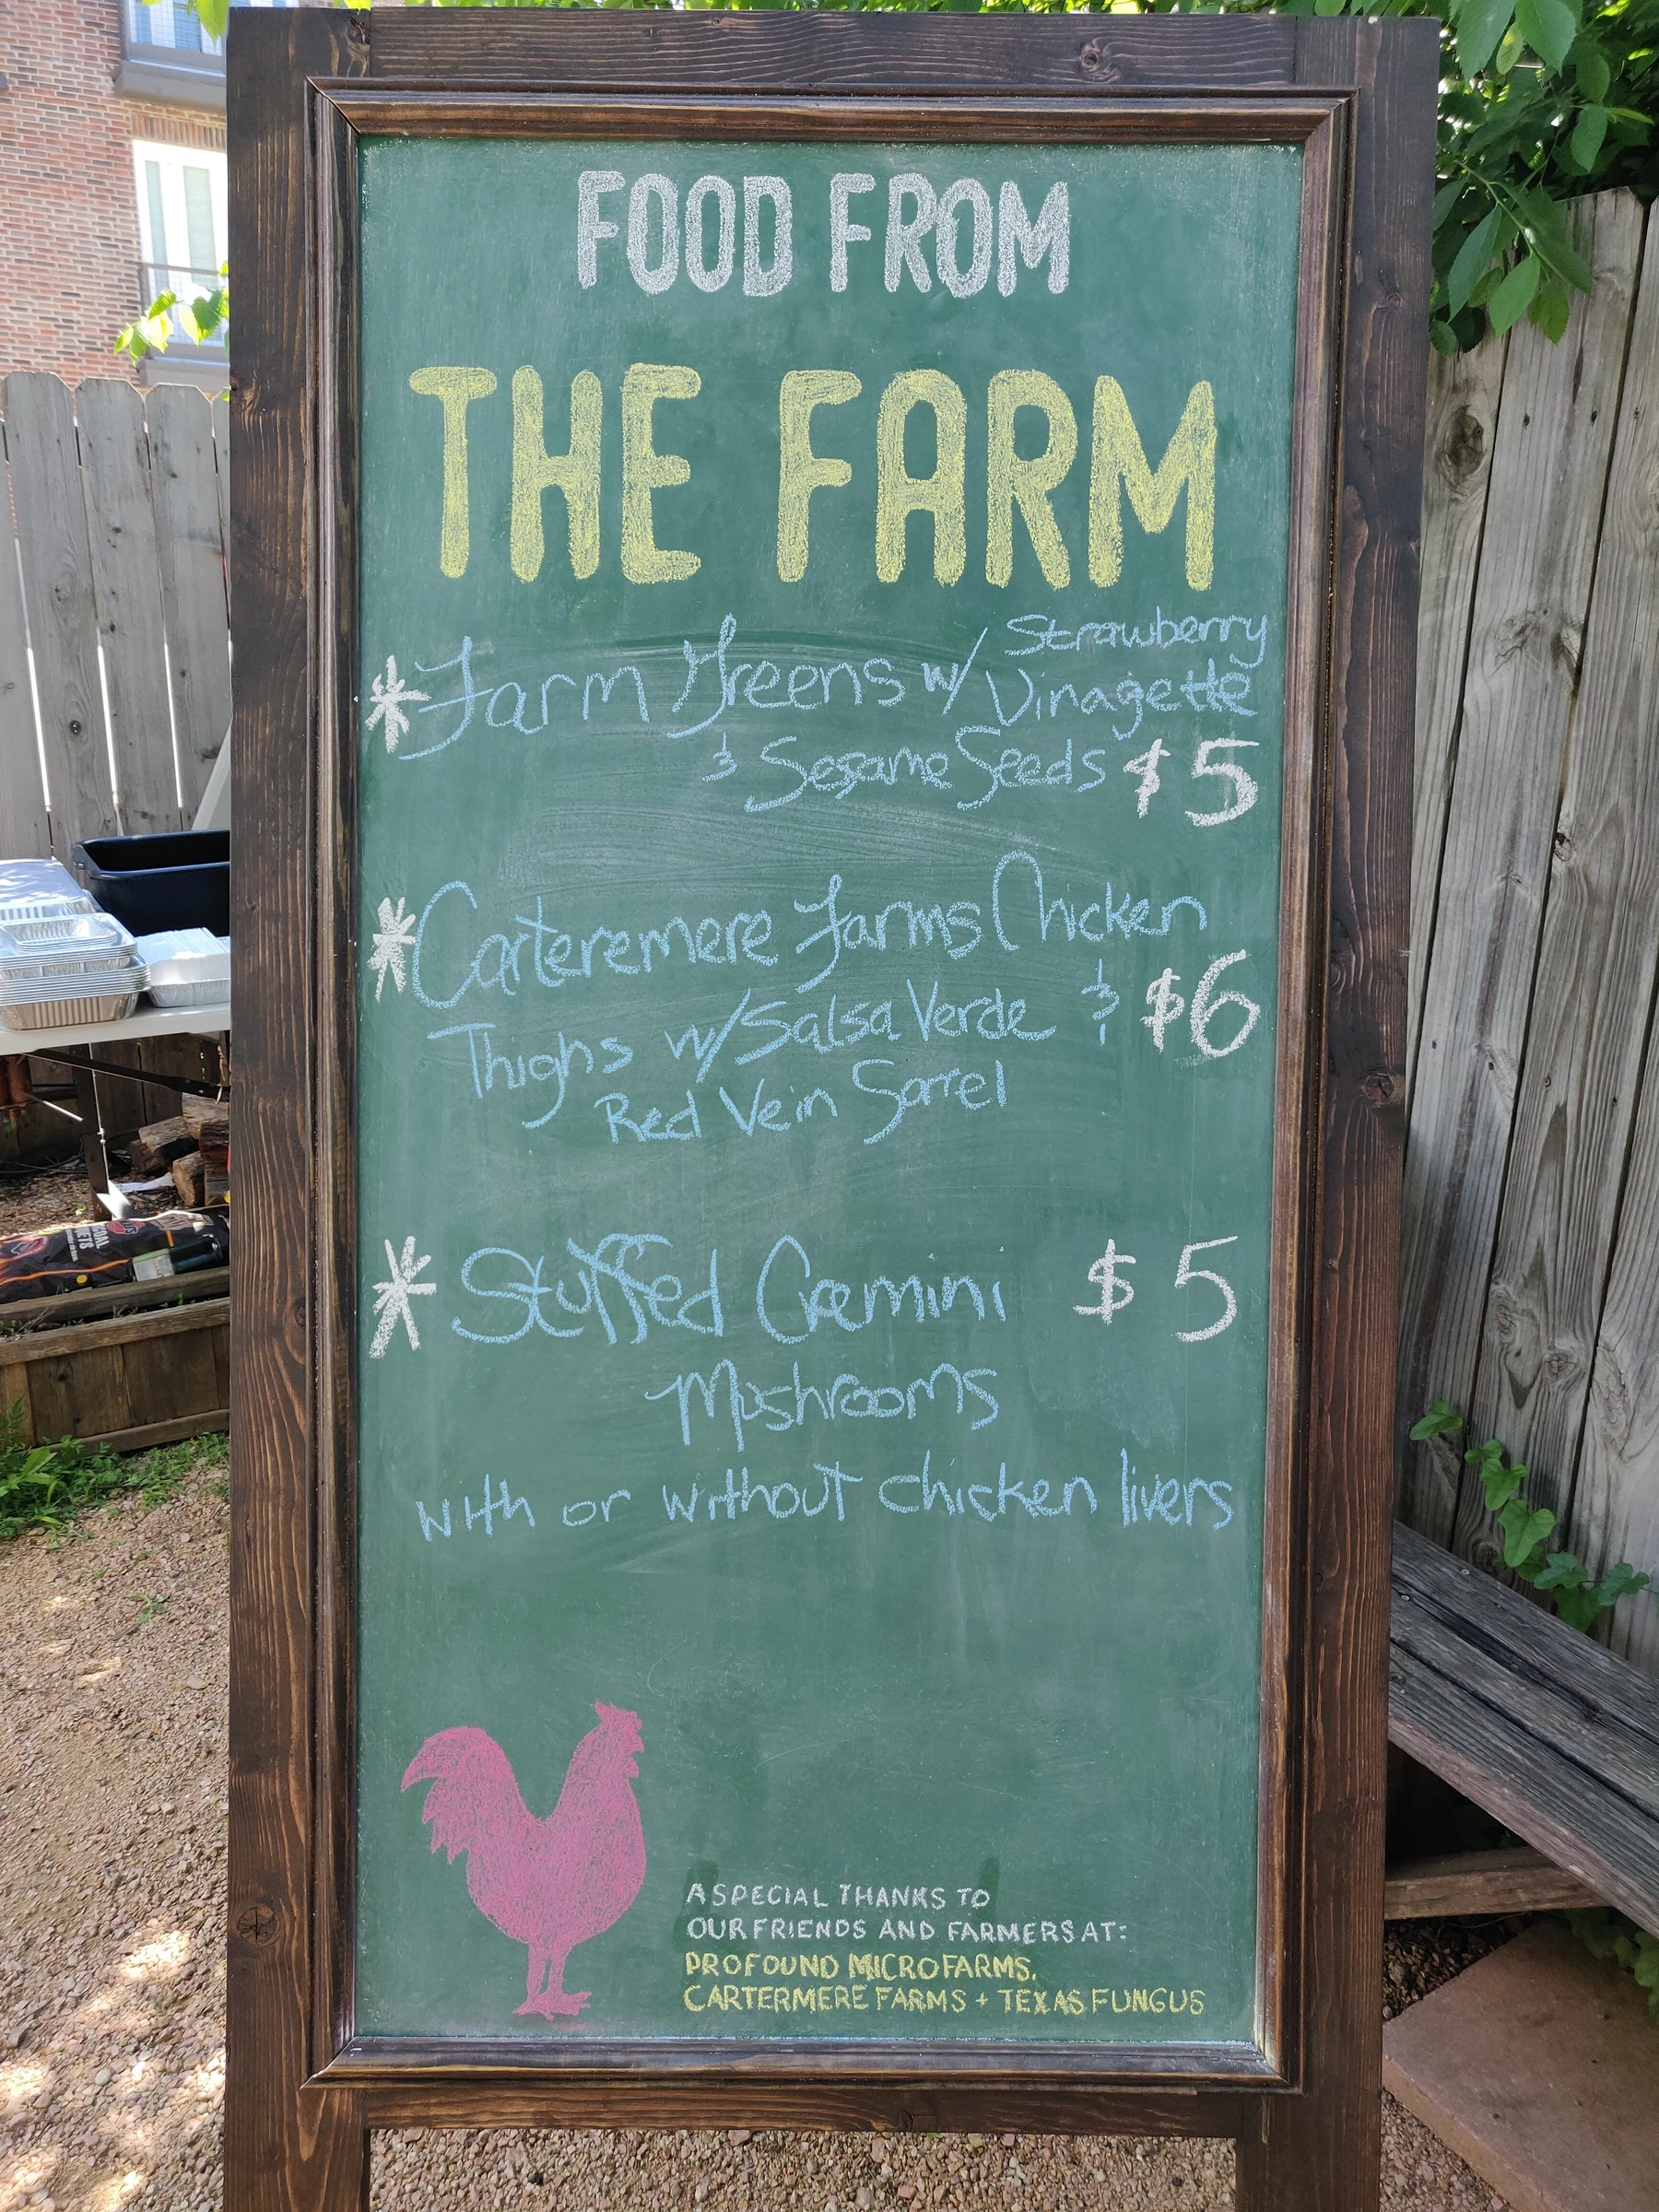 FOOD FROM
THE FARM
* Farm Greens w/ Strawberry
Vinagette
& Sesame Seeds $5
* Carteremere Farms Chicken
Thighs w/ Salsa Verde & $6
Red Vein Sorrel
* Stuffed Cremini $5
Mushrooms
with or without chicken livers
A SPECIAL THANKS TO
OUR FRIENDS AND FARMERS AT:
PROFOUND MICROFARMS,
CARTERMERE FARMS + TEXAS FUNGUS